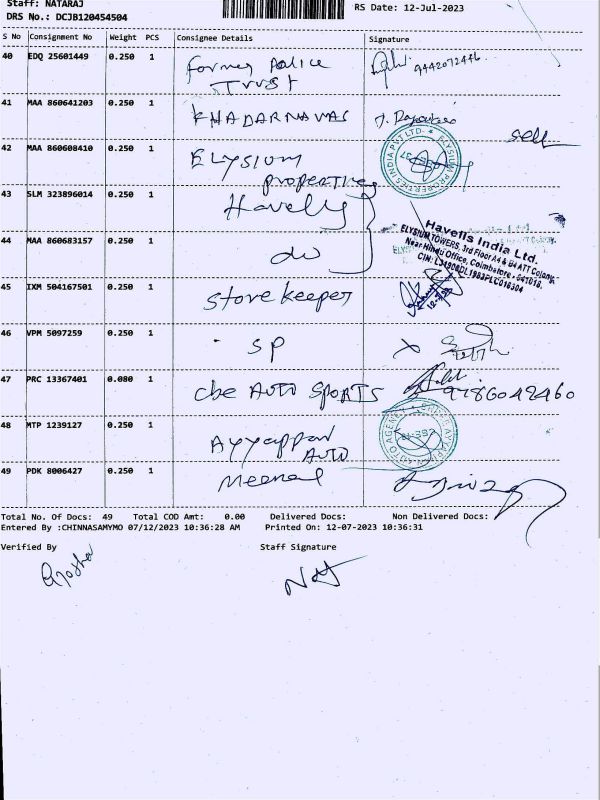 Staff: NATARAJ
DRS No.: DCJB120454504
RS Date: 12-Jul-2023
S No Consignment No Weight PCS Consignee Details Signature
40 EDQ 25601449 0.250 1 Former Police Trust 9442072446
41 MAA 860641203 0.250 1 KHADARNAVAS
42 MAA 860608410 0.250 1 ELYSIUM properties ELYSIUM PROPERTIES INDIA PVT LTD
43 SLM 323896014 0.250 1 Havells
Havells India Ltd.
ELYSIUM TOWERS, 3rd Floor A4 & B4 ATT Colony,
Near Hindu Office, Coimbatore - 641018.
44 MAA 860683157 0.250 1 do
45 IXM 504167501 0.250 1 store keeper
46 VPM 5097259 0.250 1 SP
47 PRC 13367401 0.080 1 cbe AUTO SPORTS
48 MTP 1239127 0.250 1 Ayyappan AUTO
49 PDK 8006427 0.250 1
Total No. Of Docs: 49 Total COD Amt: 0.00 Delivered Docs: Non Delivered Docs:
Entered By :CHINNASAMYMO 07/12/2023 10:36:28 AM Printed On: 12-07-2023 10:36:31
Verified By Staff Signature